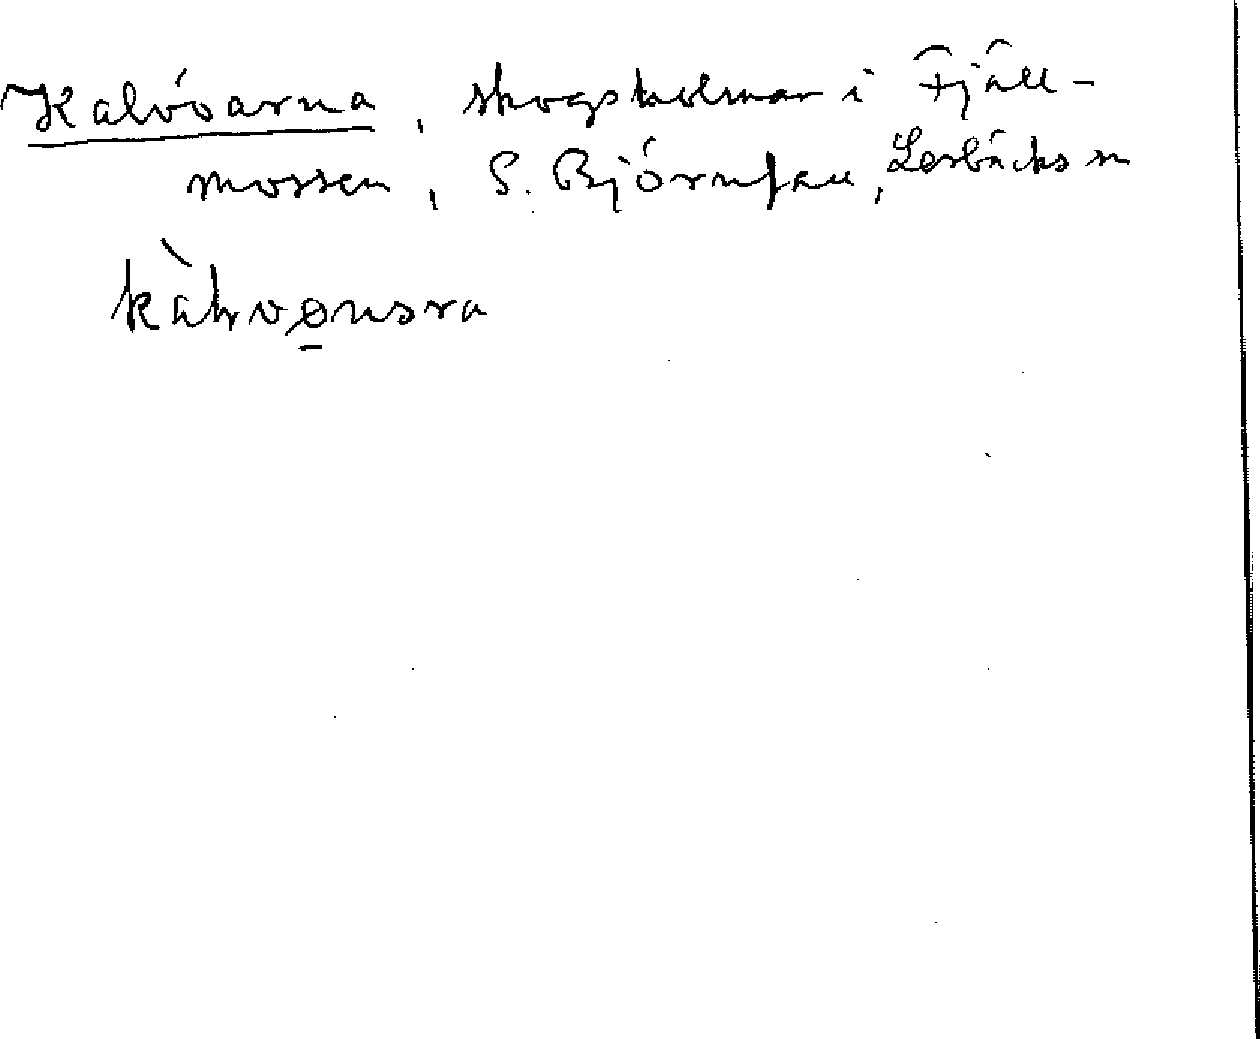 Kalvöarna, skogsholmar i Fjäll-
mossen, S. Björnfall, Lerbäcks sn